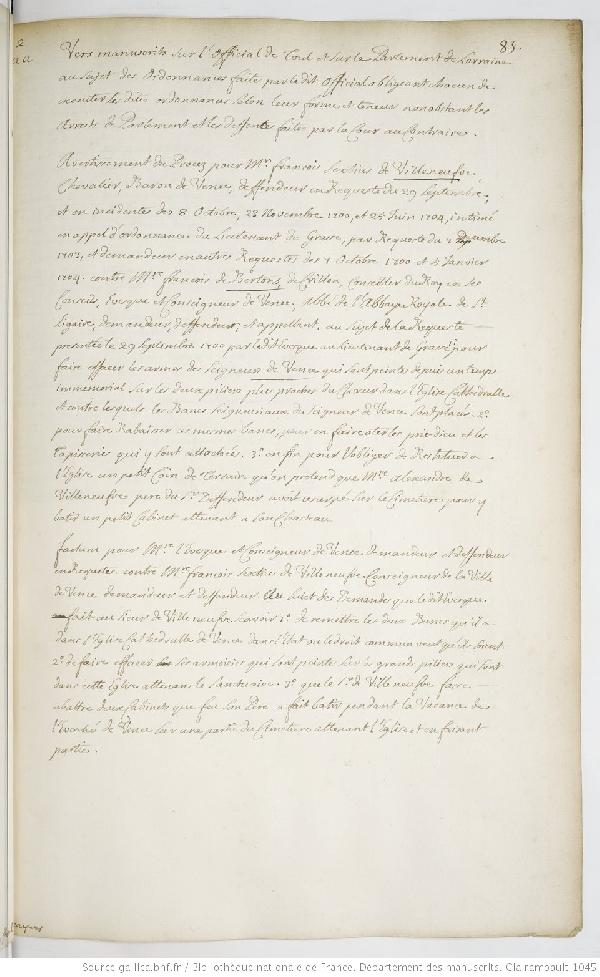 85.
Vers manuscrits sur l'Official de Toul et sur le Parlement de Lorraine
au sujet des Ordonnances faite par le dit Official obligeant chacun de
les dites ordonnances selon leur forme et teneur nonobstant les
Arrests de Parlement et les deffense faites par la Cour au Contraire.
Avertissement du Procez pour Mre. François Sextius de Villeneufve
Chevalier, Baron de Vence, deffendeur en Requeste du 29 Septembre,
et en incidentes des 8 Octobre, 22 Novembre 1700, et 25 Juin 1704, intimé
en appel d'ordonnance du Lieutenant de Grasse, par Requeste du
1702, et demandeur en autres Requestes des 1 Octobre 1700 et 4 Janvier
1704. contre Mre. François de Bertons de Crillon, Conseiller du Roy en ses
Conseils, Evesque et Conseigneur de Vence, Abbé de l'Abbaye Royale de St.
demandeur, deffendeur, et appellant, au sujet de la Requeste
presentée le 29 Septembre 1700 par le dit Evesque au Lieutenant de pour
faire effacer les armes des Seigneurs de Vence qui sont peintes depuis un temps
immemorial sur les deux piliers plus proches du Choeur dans l'Eglise Cathedralle
et contre lesquels les Bancs seigneuriaux du Seigneur de Vence sont placés. 2°
pour faire Rabaisser ces mesmes bancs, pour en faire oter les prie-dieu et les
tapisseries qui y sont attachées. 3° enfin pour l'obliger de Restituer a
l'Eglise un petit Coin de Terrain qu'on pretend que Mre. Alexandre de
Villeneufve pere du Sr. Deffendeur avoit usurpé sur le Cimetiere pour y
batir un petit Cabinet attenant a son Chateau.
Factum pour Mre. l'Evesque et Conseigneur de Vence demandeur et deffendeur
en Requestes contre Mre. François Sextius de Villeneufve Conseigneur de la Ville
de Vence demandeur et deffendeur au sujet des Demandes que le dit Evesque
fait au Sieur de Villeneufve savoir 1° de remettre les deux Bancs qu'il a
dans l'Eglise Cathedralle de Vence dans l'Etat ou le droit commun veut qu'ils soient
2° de faire effacer les armoiries qui sont peintes sur les grands piliers qui sont
dans cette Eglise attenant le Sanctuaire. 3° que le Sr. de Villeneufve fera
abattre deux Cabinets que feu son Pere a fait batir pendant la Vacance de
l'Evesché de Vence sur une partie du Cimetiere attenant l'Eglise et en faisant
partie.
Source gallica.bnf.fr / Bibliothèque nationale de France. Département des manuscrits. Clairambault 1045